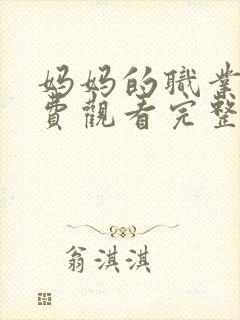 妈妈的職業
費觀看完整
翁淇淇